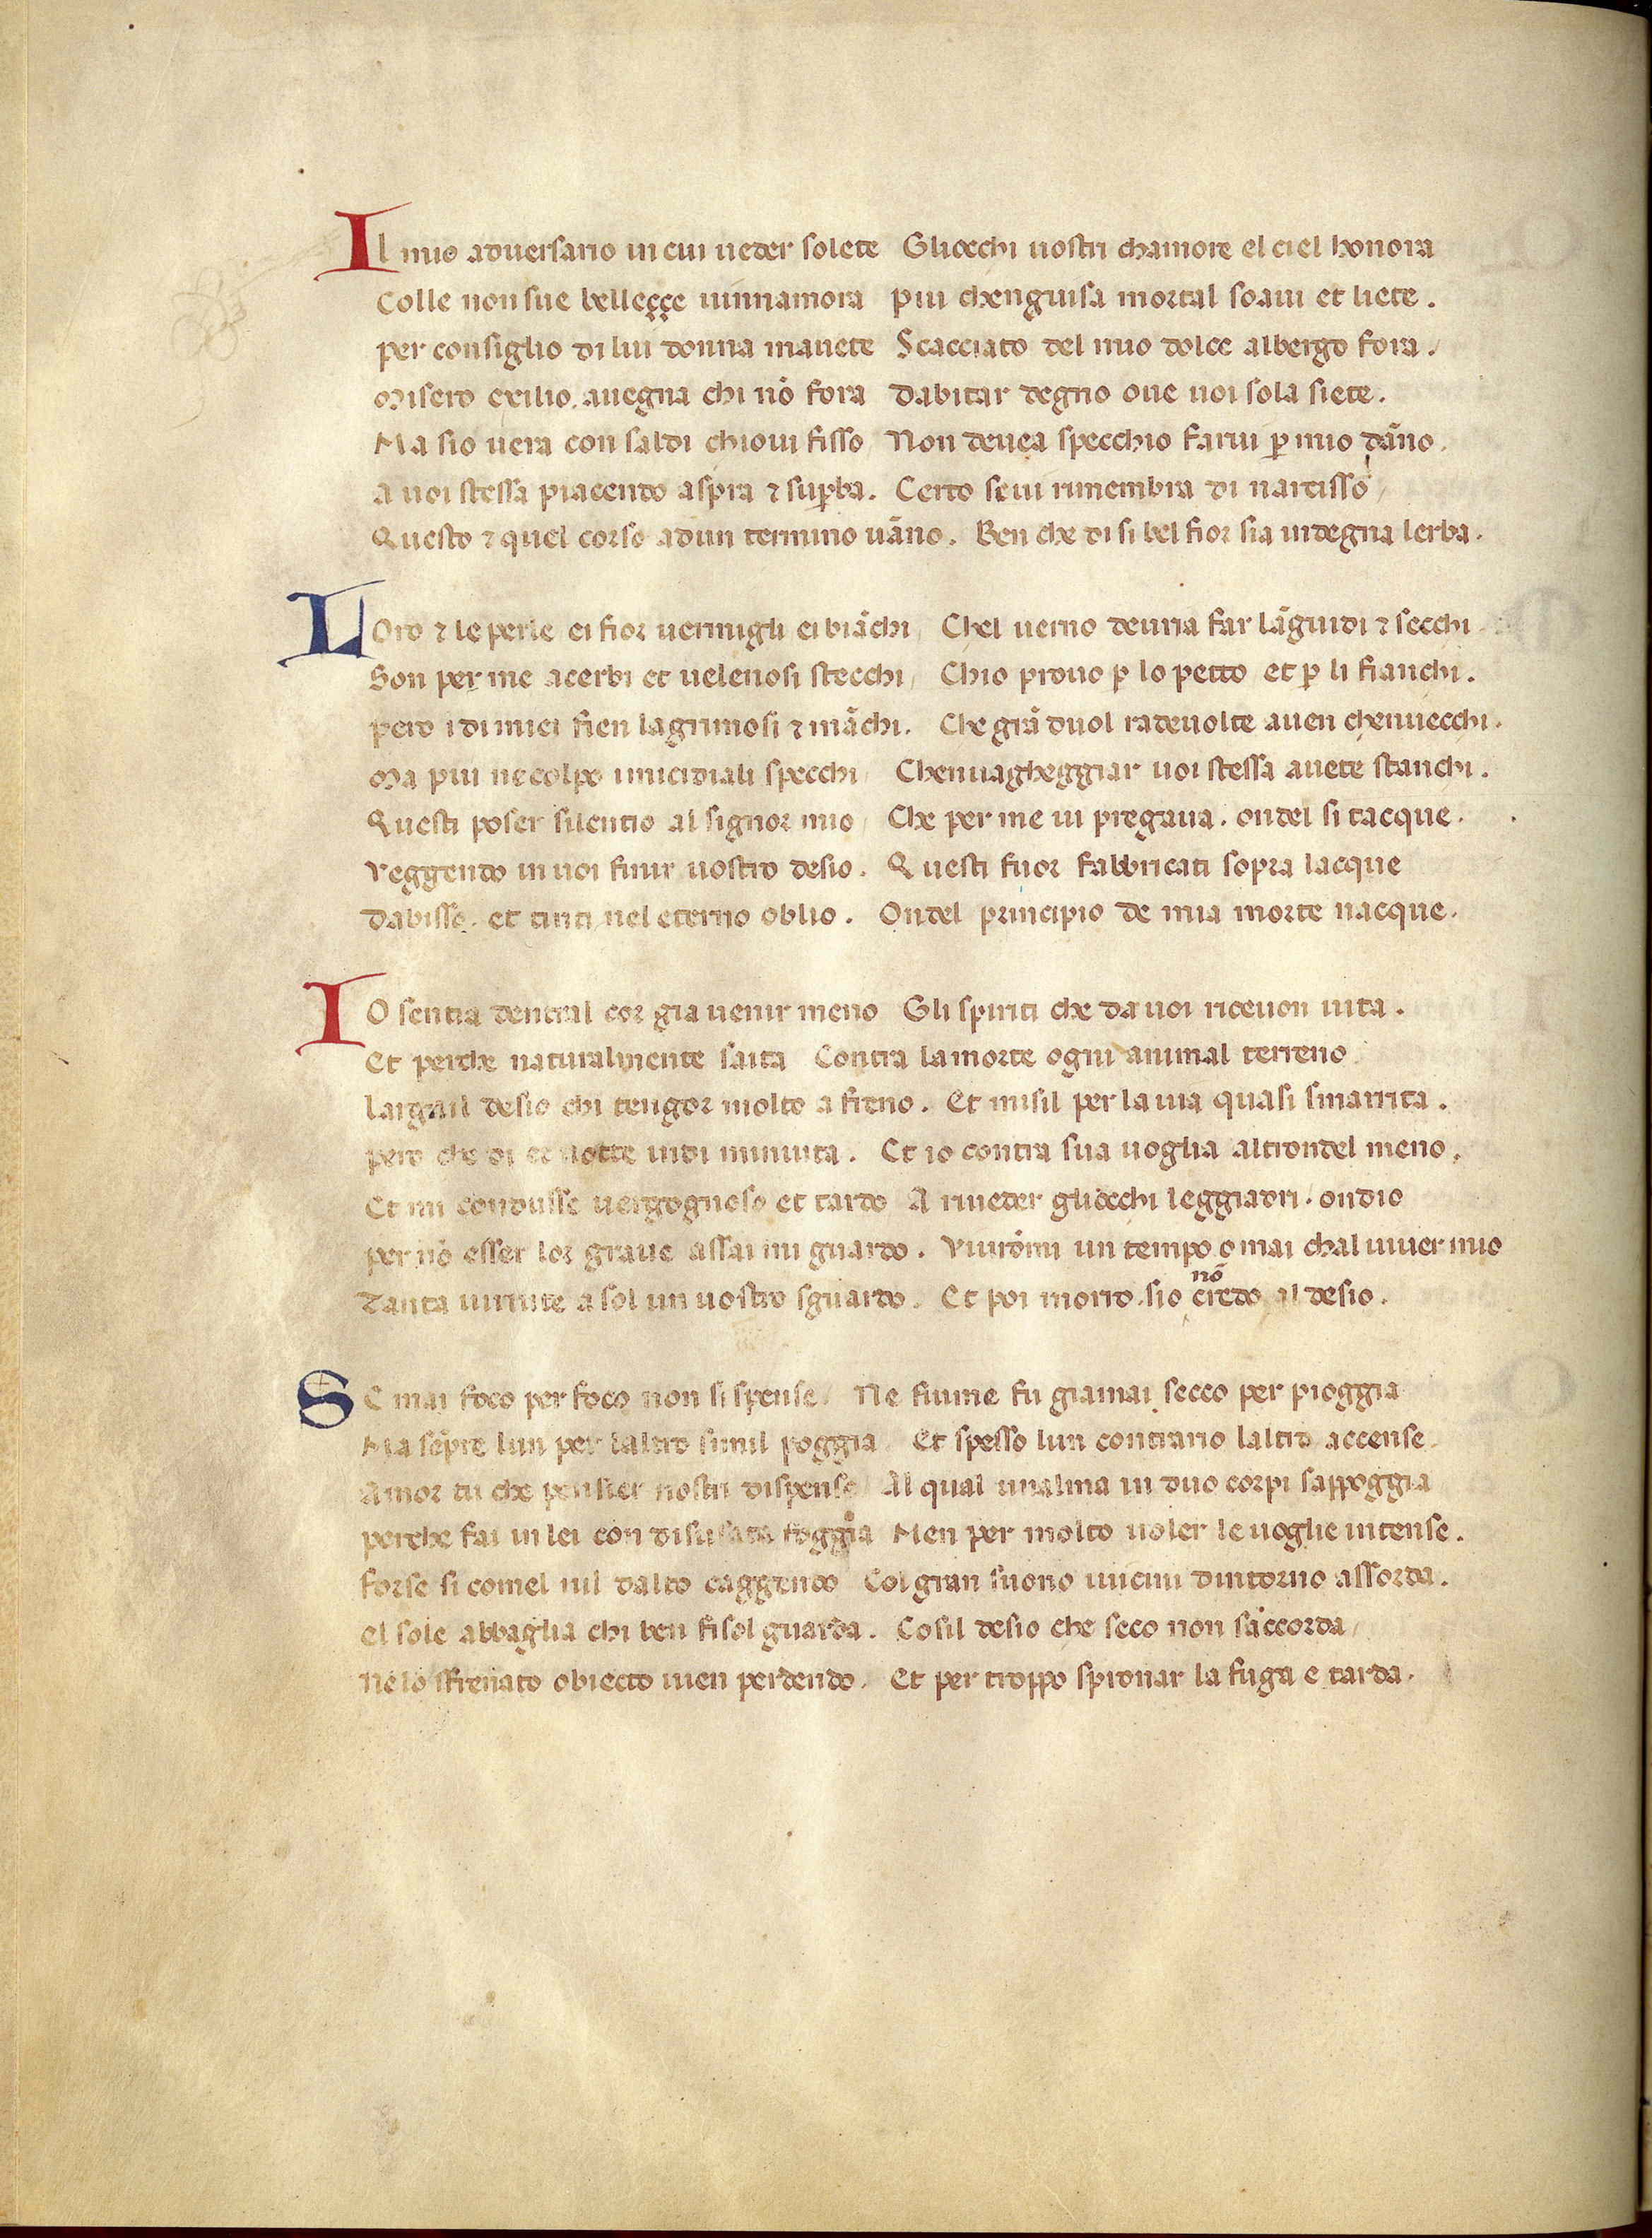 Il mio aduersario in cui ueder solete Gliocchi uostri chamore el ciel honora
Colle non sue belleççe uinnamora piu chenguisa mortal soaui et liete.
per consiglio di lui donna mauete Scacciato del mio dolce albergo fora.
Misero exilio. auegna chi nō fora dabitar degno oue uoi sola siete.
Ma sio uera con saldi chioui fisso Non deuea specchio farui ꝑ mio dāno.
A uoi stessa piacendo aspra ⁊ suꝑba. Certo seui rimembra di narcisso
Questo ⁊ quel corso adun termino uāno. Ben che di si bel fior sia indegna lerba.
LOro ⁊ le perle ei fior uermigli ei biāchi Chel uerno deuria far lāguidi ⁊ secchi
Son per me acerbi et uelenosi stecchi Chio prouo ꝑ lo petto et ꝑ li fianchi.
pero i di miei fien lagrimosi ⁊ māchi. Che grā duol radeuolte auen chenuecchi.
Ma piu ne colpo imicidiali specchi Chenuagheggiar uoi stessa auete stanchi.
Questi poser silentio al signor mio Che per me ui pregaua. ondel si tacque.
veggendo in uoi finir uostro desio. Questi fuor fabbricati sopra lacque
dabisso. et tinti nel eterno oblio. Ondel principio de mia morte nacque.
IO sentia dentral cor gia uenir meno Gli spiriti che da uoi riceuon uita.
Et perche naturalmente saita Contra la morte ogni animal terreno
largail desio chi tengor molto a freno. Et misil per la uia quasi smarrita.
pero che di et notte indi minuita. Et io contra sua uoglia altrondel meno.
Et mi condusse uergognoso et tardo A riueder gliocchi leggiadri. ondio
per nō esser lor graue assai mi guardo. viurōmi un tempo omai chal uiuer mio
Tanta uirtute a sol un uostro sguardo. Et poi morro. sio nō credo al desio.
SE mai foco per foco non si spense. Ne fiume fu giamai secco per pioggia
Ma sēpre lun per laltro simil poggia Et spesso lun contrario laltro accense.
Amor tu che pensier nostri dispense Al qual unalma in duo corpi sappoggia
perche fai in lei con disusata foggia Men per molto uoler le uoglie intense.
forse si comel nil dalto caggendo Col gran suono iuicini dintorno assorda.
El sole abbaglia chi ben fisol guarda. Cosil desio che seco non saccorda
Nelo sfrenato obiecto uien perdendo. Et per troppo spronar la fuga e tarda.